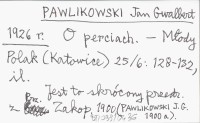 PAWLIKOWSKI Jan Gwalbert
1926 r. O perciach. – Młody
Polak (Katowice) 25/6: 128-132,
il.
Jest to skrócony przedr.
z Prz. Zakop. 1900 (PAWLIKOWSKI J.G.
1900 a).